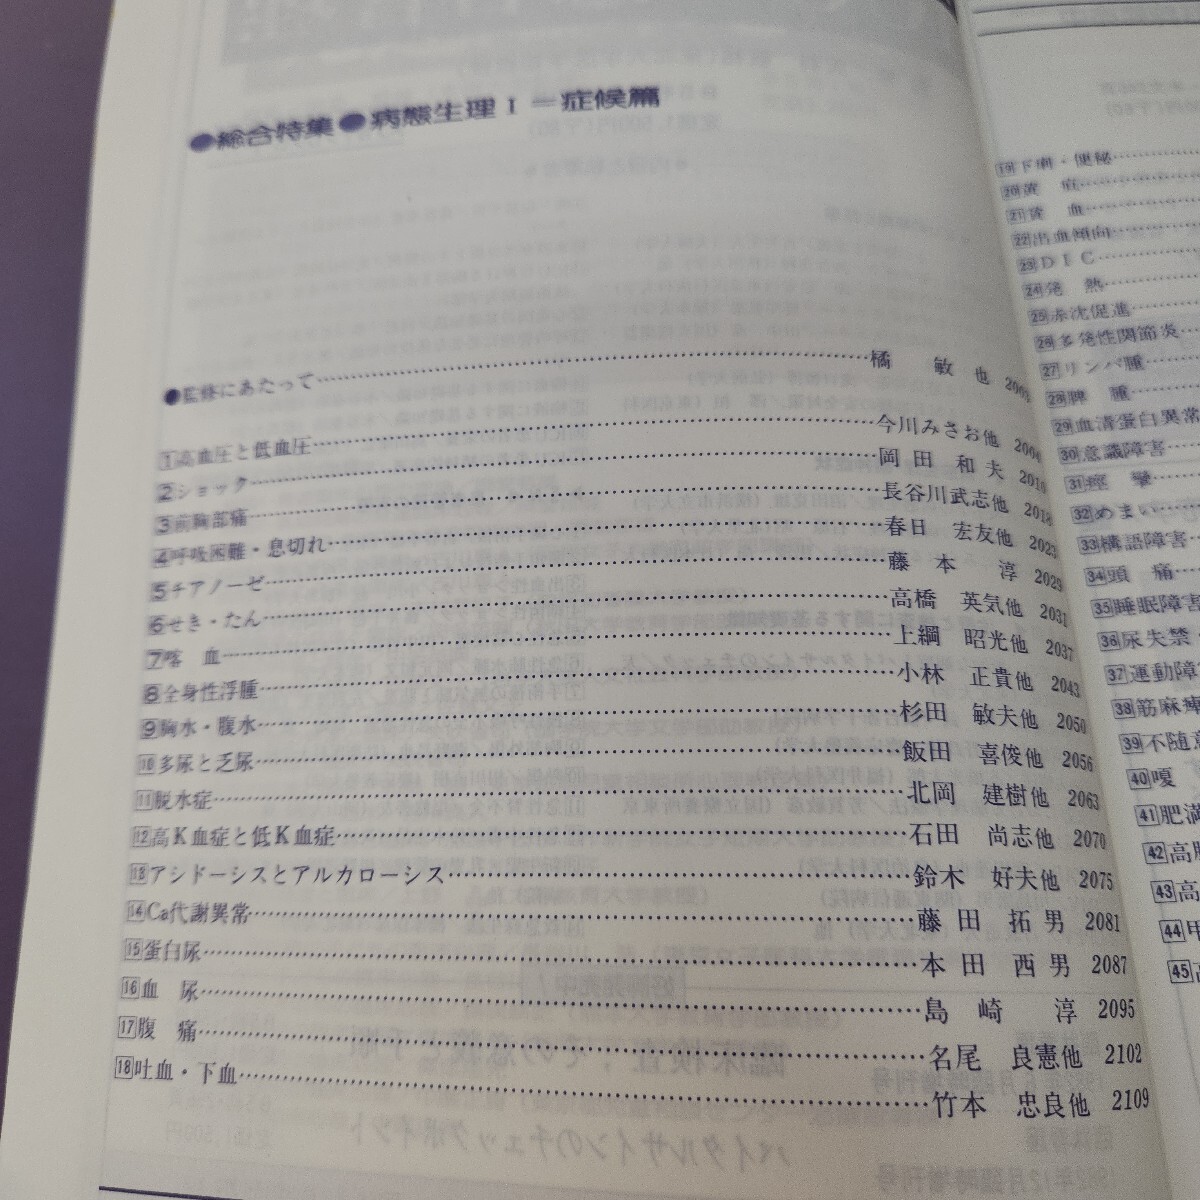 ●総合特集●病態生理Ⅰ＝症候篇
●監修にあたって……橘　敏也 2003
1高血圧と低血圧……今川みさお他 2006
2ショック……岡田和夫 2010
3前胸部痛……長谷川武志他 2018
4呼吸困難・息切れ……春日　宏友他 2023
5チアノーゼ……藤本　淳 2029
6せき・たん……高橋　英気他 2031
7喀　血……上綱　昭光他 2037
8全身性浮腫……小林　正貴他 2043
9胸水・腹水……杉田　敏夫他 2050
10多尿と乏尿……飯田　喜俊他 2056
11脱水症……北岡　建樹他 2063
12高K血症と低K血症……石田　尚志他 2070
13アシドーシスとアルカローシス……鈴木　好夫他 2075
14Ca代謝異常……藤田拓男 2081
15蛋白尿……本田西男 2087
16血　尿……島崎　淳 2095
17腹　痛……名尾　良憲他 2102
18吐血・下血……竹本　忠良他 2109
19下痢・便秘……
20黄　疸……
21貧　血……
22出血傾向……
23DIC……
24発　熱……
25赤沈促進……
26多発性関節炎……
27リンパ腫……
28脾　腫……
29血清蛋白異常
30意識障害……
31痙　攣……
32めまい……
33構語障害……
34頭　痛……
35睡眠障害
36尿失禁
37運動障
38筋麻痺
39不随意
40嗄
41肥満
42高脂
43高
44甲
45